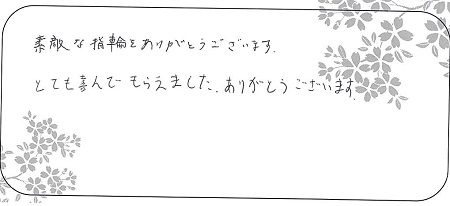 素敵な指輪をありがとうございます.
とても喜んでもらえました.ありがとうございます.